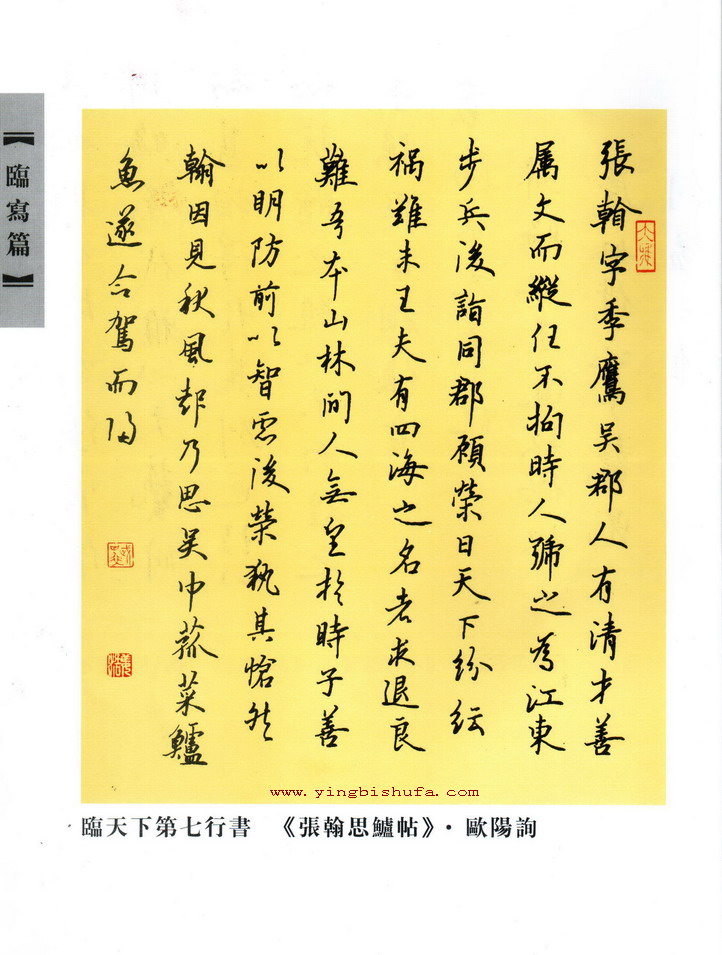 【臨寫篇】
張翰字季鷹吳郡人有清才善
属文而縱任不拘時人號之為江東
步兵後詣同郡顧榮曰天下紛紜
禍難未王夫有四海之名者求退良
難吾本山林間人無望於時子善
以明防前以智慮後榮執其愴然
翰因見秋風起乃思吳中菰菜鱸
魚遂命駕而歸
www.yingbishufa.com
臨天下第七行書 《張翰思鱸帖》·歐陽詢